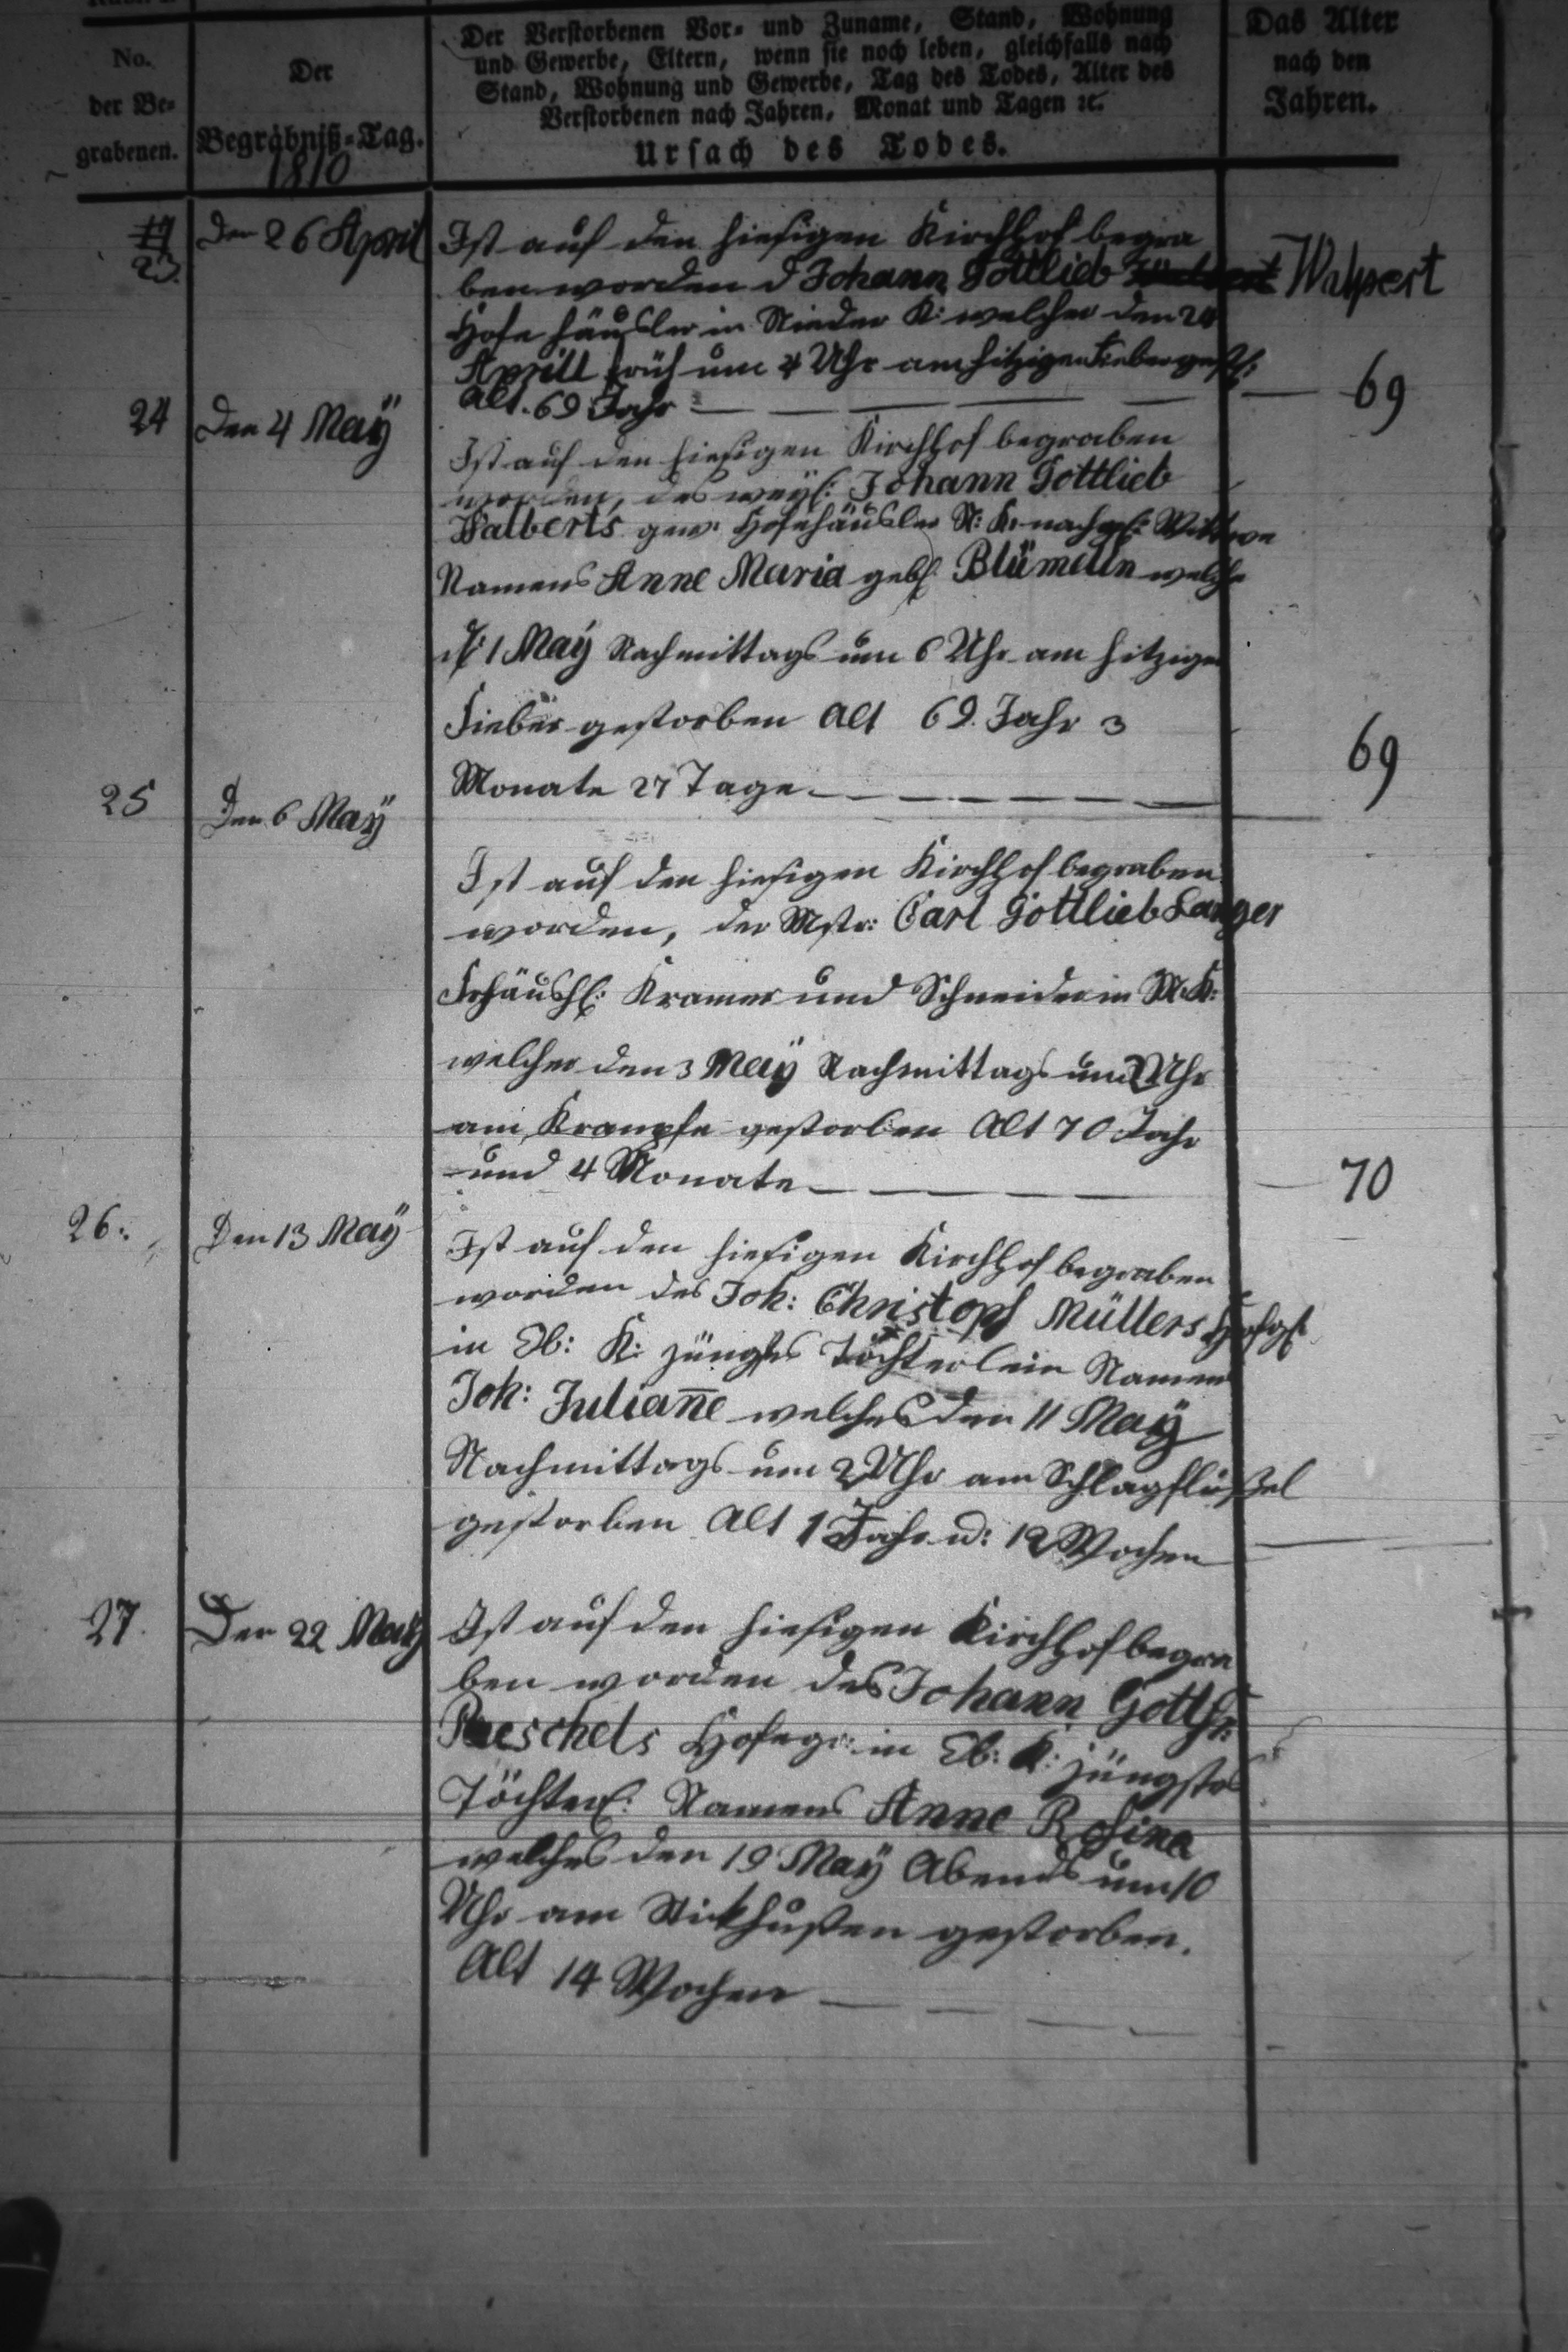 No.
der Be=
grabenen.
Der
Begräbniß=Tag.
1810
Der Verstorbenen Vor= und Zuname, Stand, Wohnung
und Gewerbe, Eltern, wenn sie noch leben, gleichfalls nach
Stand, Wohnung und Gewerbe, Tag des Todes, Alter des
Verstorbenen nach Jahren, Monat und Tagen ꝛc.
Ursach des Todes.
Das Alter
nach den
Jahren.
23.
Den 26 April
Ist auf den hiesigen Kirchhof begra
ben worden d Johann Gottlieb Walpert
Hofehäusler in Nieder K: welcher den 24
Aprill früh um 4 Uhr am hitzigen Fieber gest:
Alt. 69 Jahr
69
24
Den 4 May
Ist auf den hiesigen Kirchhof begraben
worden, des weyl: Johann Gottlieb
Walberts gew: Hofehäusler N: K: nachgel: Wittwe
Namens Anne Maria geb: Blümelin welche
d: 1 May Nachmittags um 6 Uhr am hitzigen
Fieber gestorben Alt 69. Jahr 3
Monate 27 Tage
69
25
Den 6 May
Ist auf den hiesigen Kirchhof begraben
worden, der Mstr: Carl Gottlieb Langer
Frhäusl: Kramer und Schneider in M: K:
welcher den 3 May Nachmittags um 2 Uhr
am Krampfe gestorben Alt 70 Jahr
und 4 Monate
70
26:
Den 13 May
Ist auf den hiesigen Kirchhof begraben
worden des Joh: Christoph Müllers
in Ob: K: jüngstes Töchterlein Namens
Joh: Julian̄e welches den 11 May
Nachmittags um 2 Uhr am Schlagflüßel
gestorben Alt 1 Jahr u: 12 Wochen
27.
Den 22 May
Ist auf den hiesigen Kirchhof begra
ben worden des Johann Gottfr:
Pueschels Hofegr: in Ob: K: jüngstes
Töchterl: Namens Anne Rosina
welches den 19 May Abends um 10
Uhr am Stickhusten gestorben.
Alt 14 Wochen